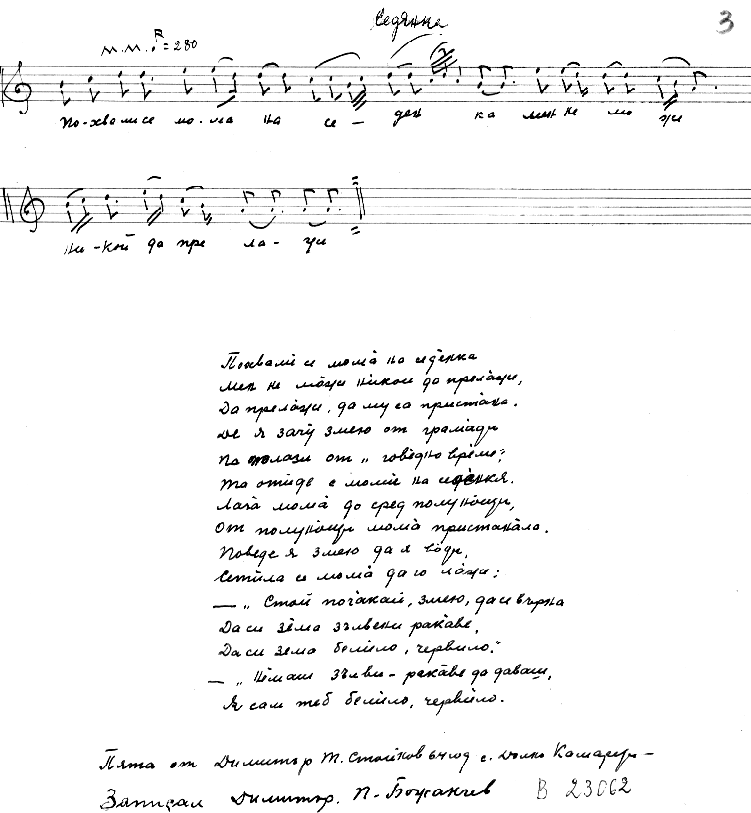 Седянка
3
М.М. ♪ = 280 R
По-хвали се мо-ма на се - ден ка мен не мо жи
Ни-кой да пре ла- жи
Похвали се мома̀ на седѐнка
Мен не мо̀жи никои да прела̀жи,
Да прела̀жи, да му са приста̀на.
Де я зачу̀ змею от грама̀ди
Па излази от „ говѐдно врѐме";
Та отѝде с момѝ на седѐнкя.
Лага мома̀ до сред полуно̀щи,
От полуно̀щи мома̀ пристана̀ла.
Поведе я змею да я во̀ди,
Сетѝла се мома̀ да го ла̀жи:
— „ Стой поча̀кай, змею, да си върна
Да си зѐма зълвени ракаве,
Да си зема белѝло, червѝло."
— „ Нѐмаш зълви - рака̀ве да даваш,
Я сам теб белѝло, червѝло.
Пята от Димитър Т. Стойков в с. Долно Камарци -
Записал Димитър. П. Божанчев В 23062